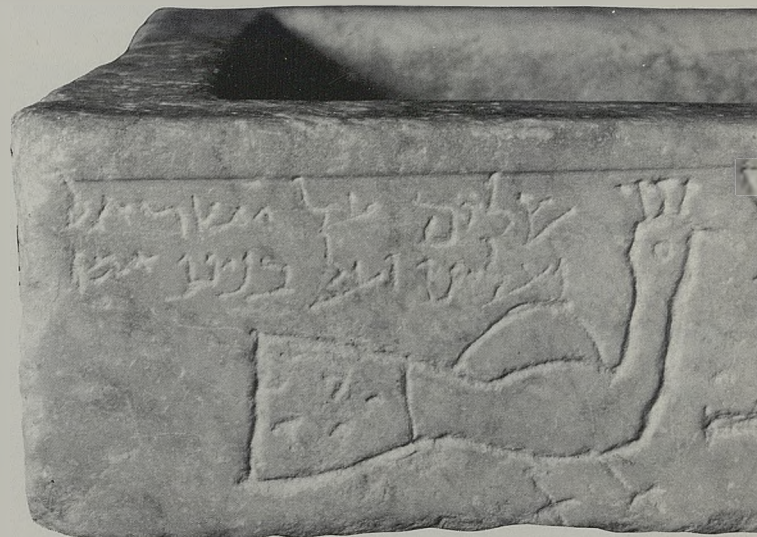 שלום על ישראל
ועלינו ועל בנינו אמן